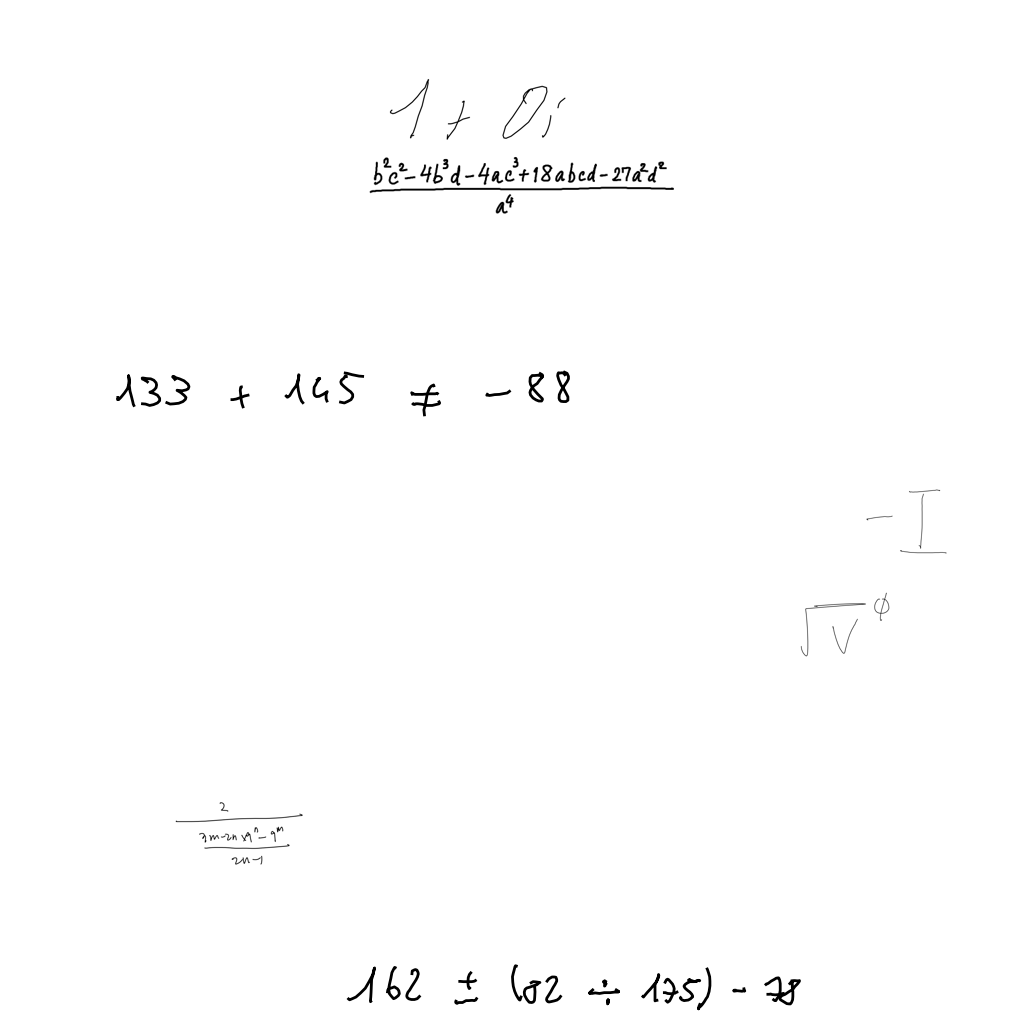 1 + 0i
\frac{b^2c^2-4b^3d-4ac^3+18abcd-27a^2d^2}{a^4}
133 + 145 ≠ -88
-I
\sqrt{V}^{\phi}
\frac{2}{\frac{3m-2n \times 9^n-9^m}{2n-1}}
162 ± (82 ÷ 175) - 78